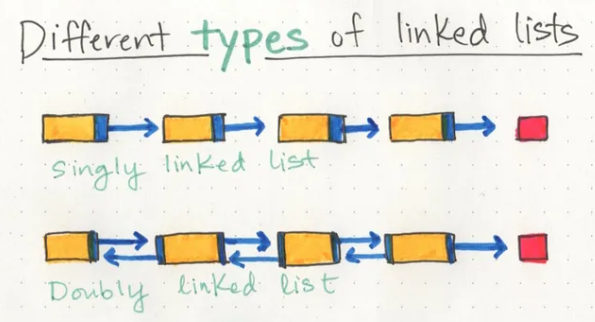 Different types of linked lists
singly linked list
Doubly linked list